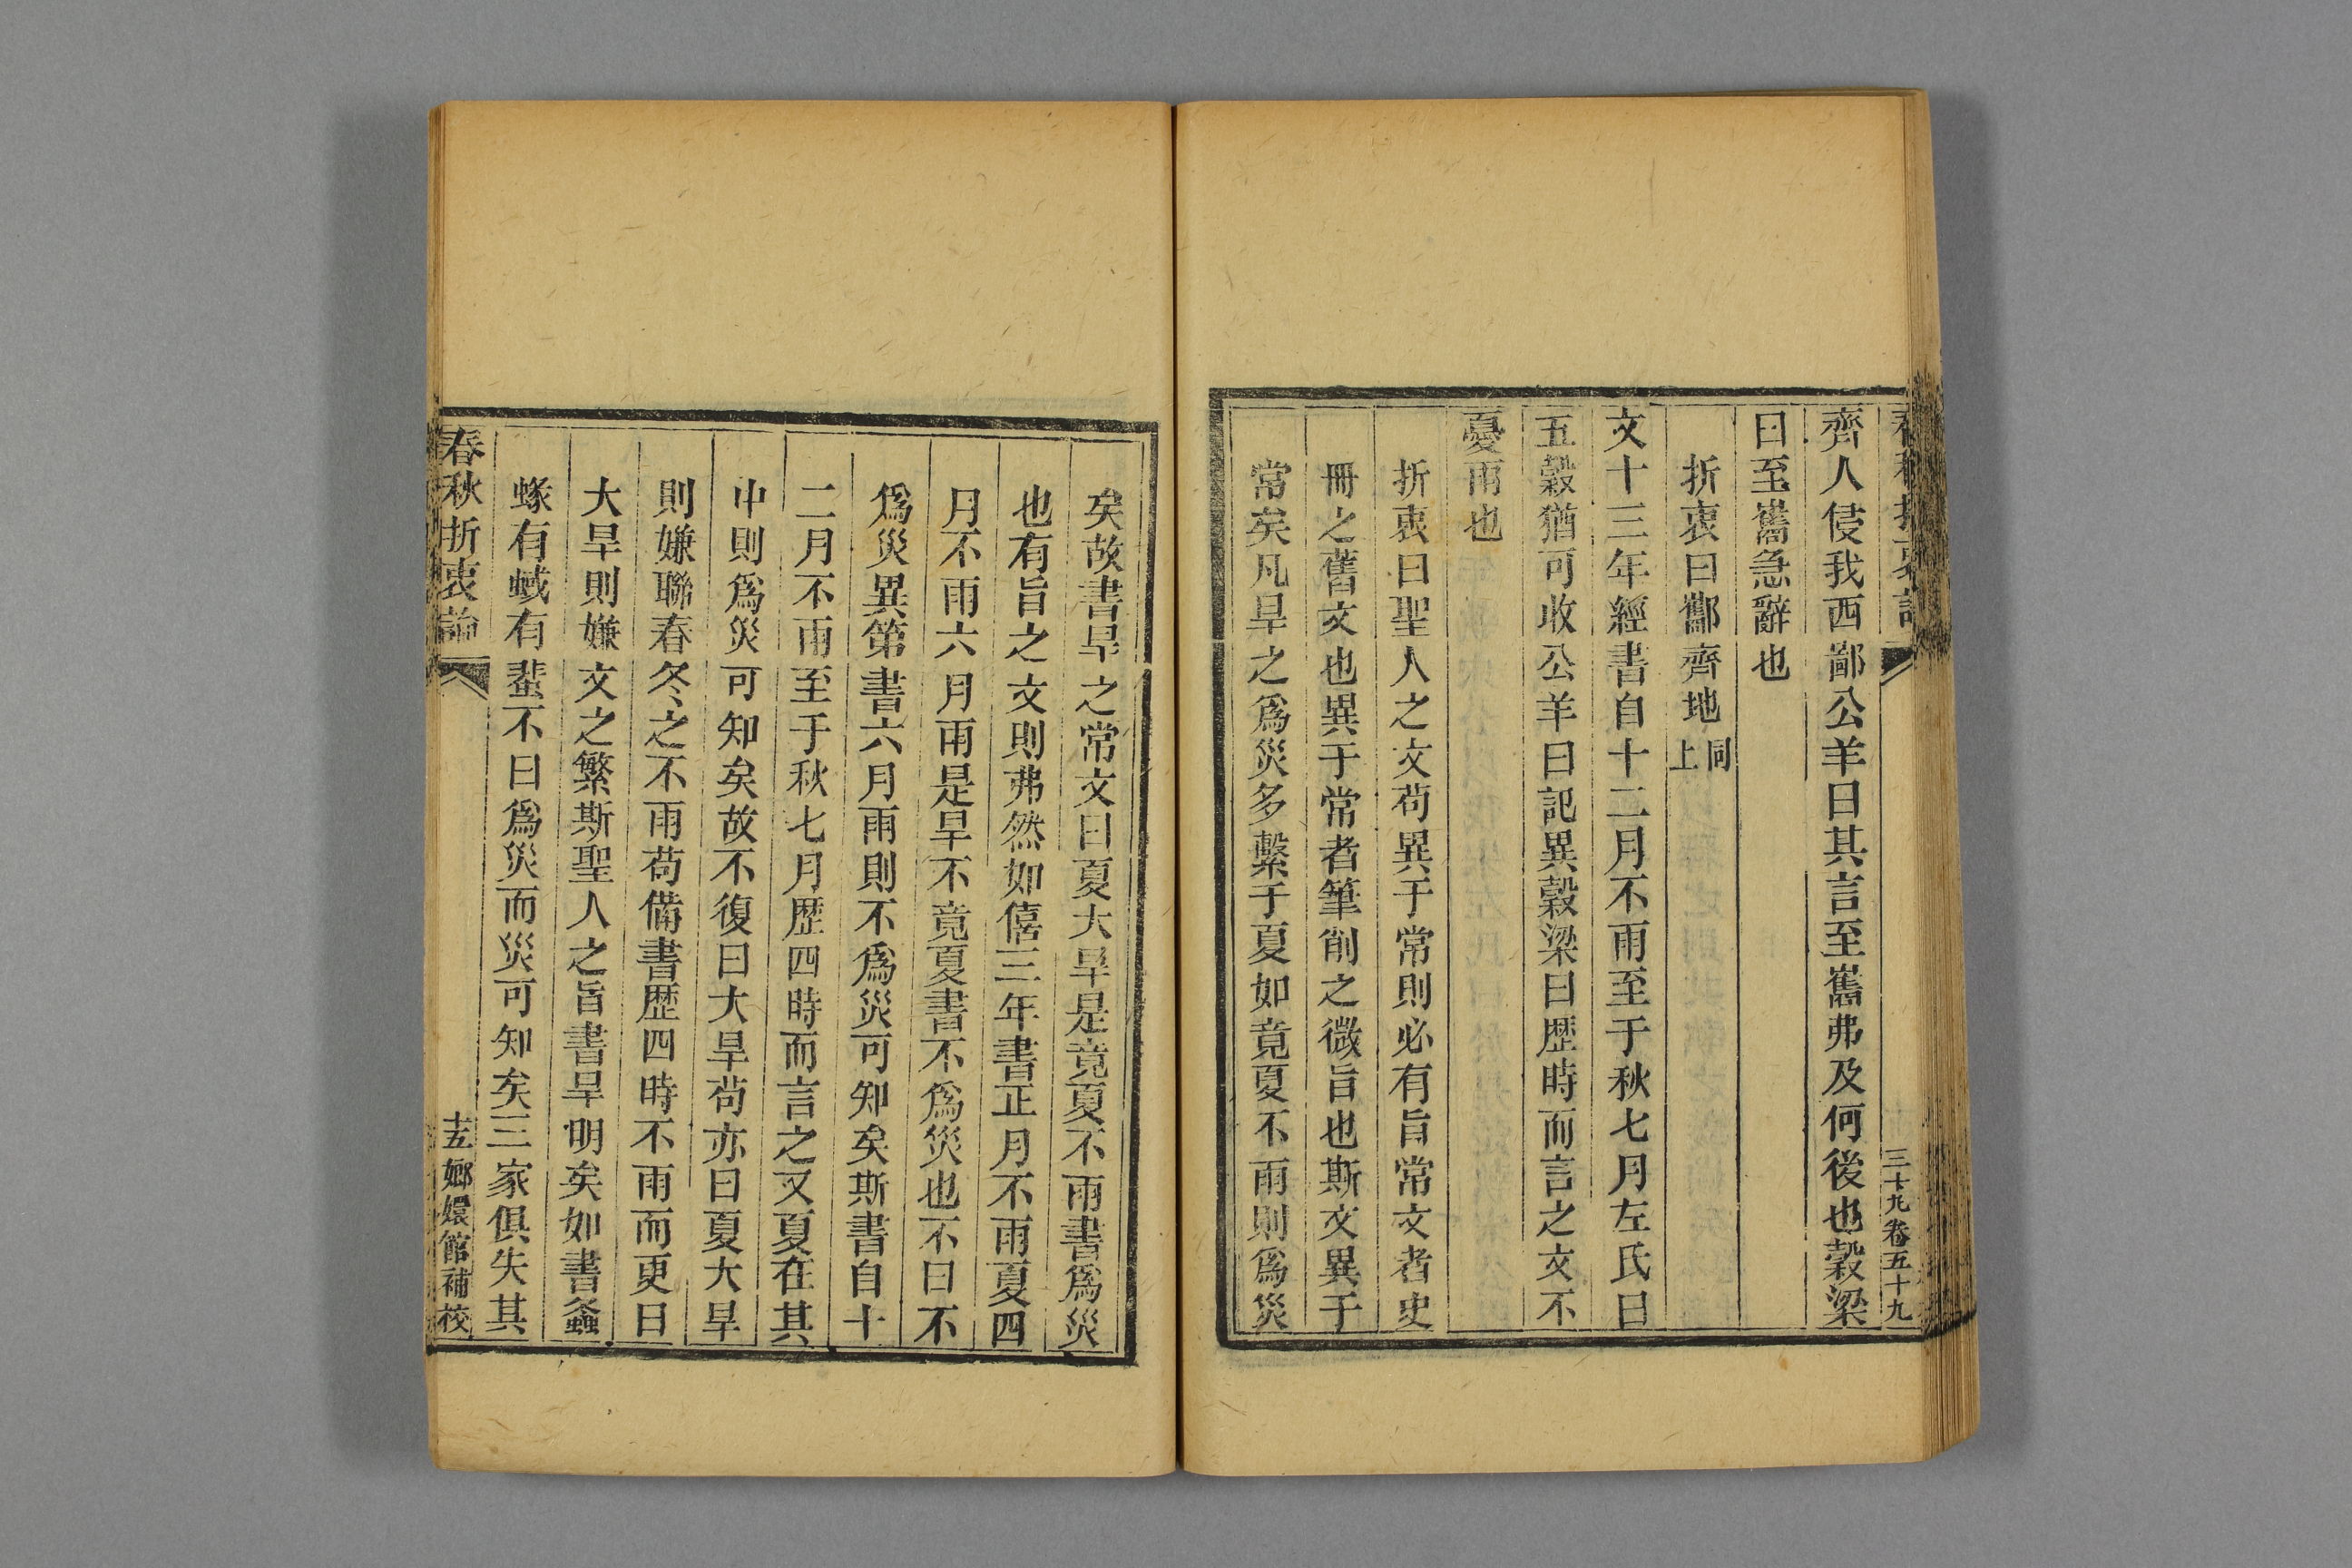 三十九 卷五十九
齊人侵我西鄙公羊曰其言至巂弗及何後也穀梁
曰至巂急辭也
折衷曰酅齊地同上
文十三年經書自十二月不雨至于秋七月左氏曰
五穀猶可收公羊曰記異穀梁曰歴時而言之文不
憂雨也
折衷曰聖人之文苟異于常則必有旨常文者史
冊之舊文也異于常者筆削之微旨也斯文異于
常矣凡旱之爲災多繫于夏如竟夏不雨則爲災
矣故書旱之常文曰夏大旱是竟夏不雨書爲災
也有旨之文則弗然如僖三年書正月不雨夏四
月不雨六月雨是旱不竟夏書不爲災也不曰不
爲災異第書六月雨則不爲災可知矣斯書自十
二月不雨至于秋七月歴四時而言之又夏在其
中則爲災可知矣故不復曰大旱苟亦曰夏大旱
則嫌聯春冬之不雨苟備書歴四時不雨而更曰
大旱則嫌文之繁斯聖人之旨書旱明矣如書螽
蝝有蜮有蜚不曰爲災而災可知矣三家俱失其
春秋折衷論 十五 嫏嬛館補校